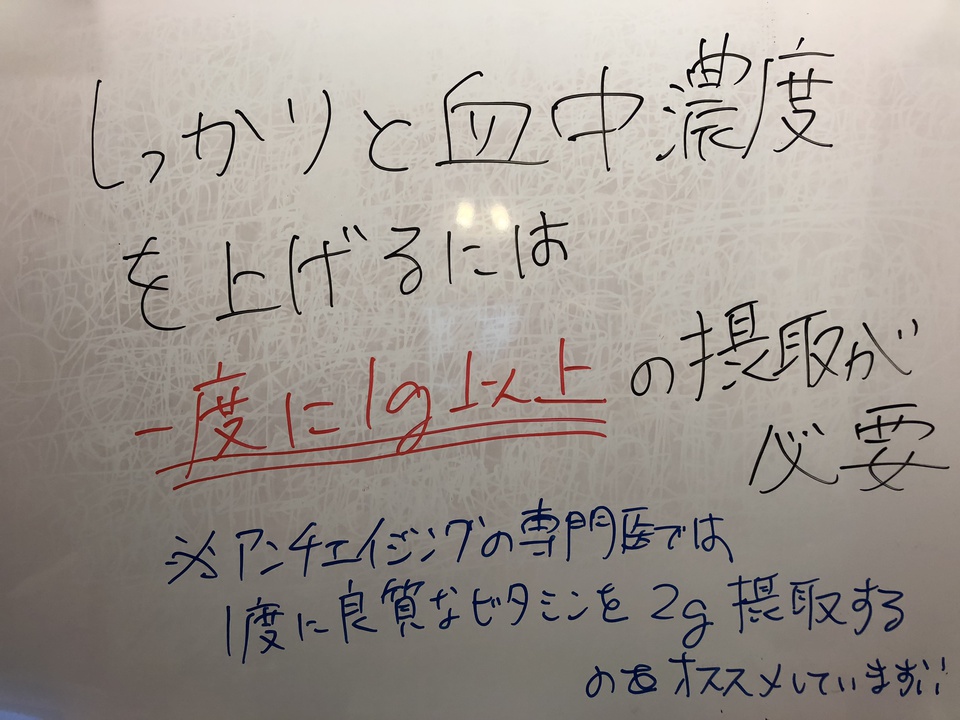 しっかりと血中濃度
を上げるには
一度に1g以上の摂取が
必要
※アンチエイジングの専門医では
1度に良質なビタミンを2g摂取する
のをオススメしています!!